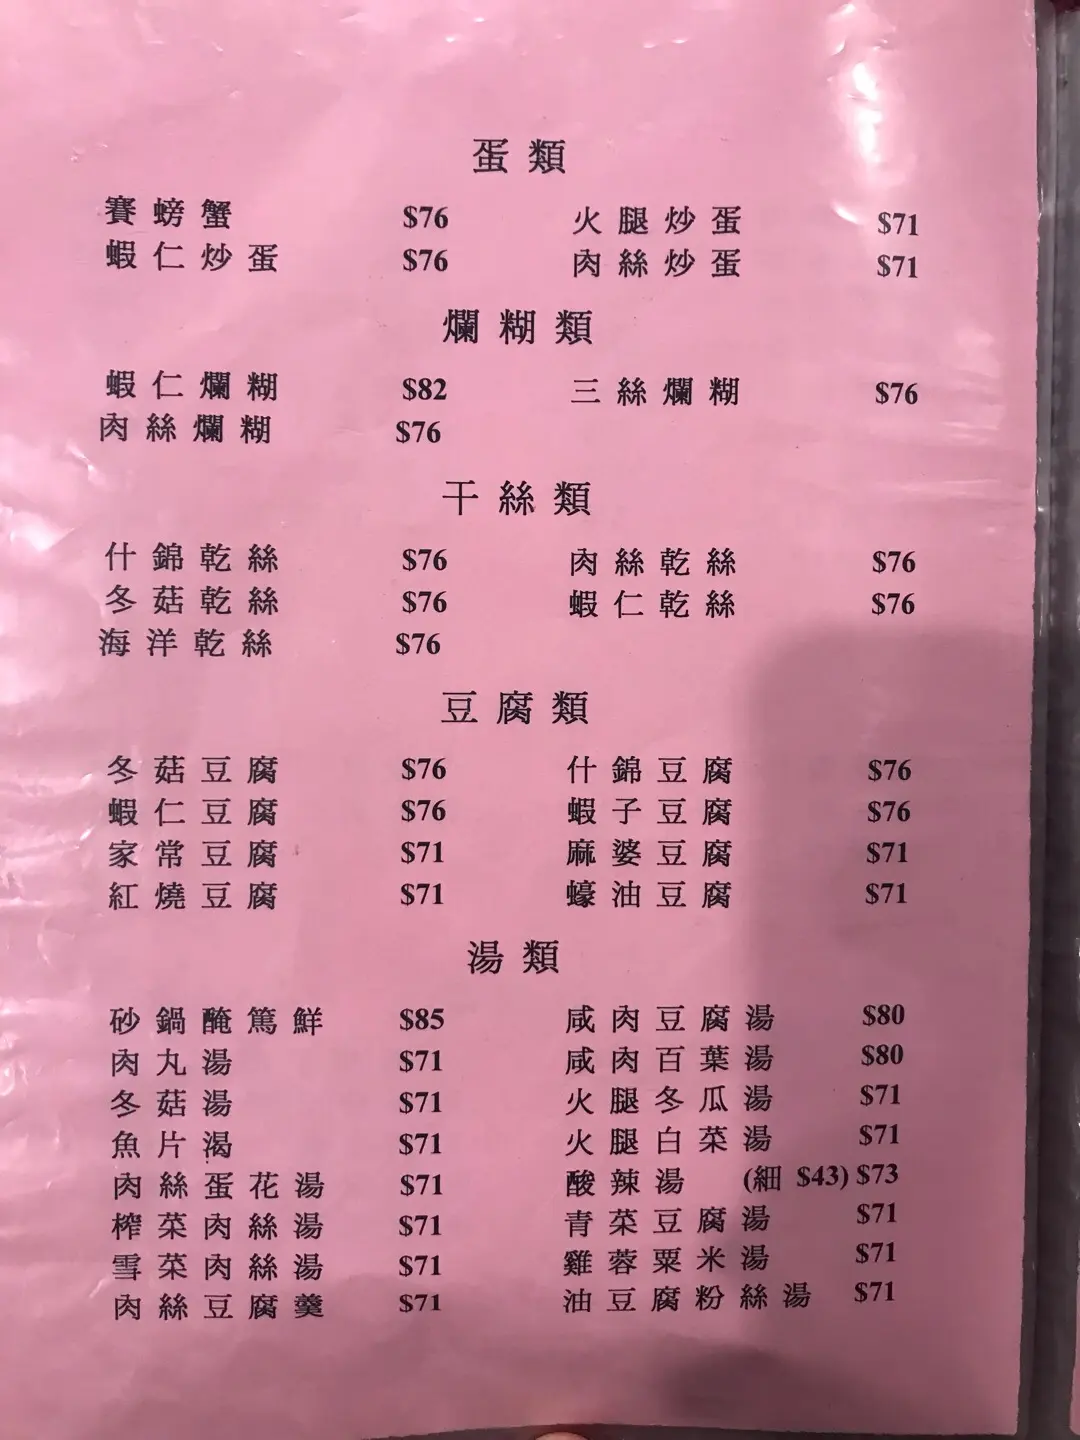 蛋類
賽螃蟹 $76 火腿炒蛋 $71
蝦仁炒蛋 $76 肉絲炒蛋 $71
爛糊類
蝦仁爛糊 $82 三絲爛糊 $76
肉絲爛糊 $76
干絲類
什錦乾絲 $76 肉絲乾絲 $76
冬菇乾絲 $76 蝦仁乾絲 $76
海洋乾絲 $76
豆腐類
冬菇豆腐 $76 什錦豆腐 $76
蝦仁豆腐 $76 蝦子豆腐 $76
家常豆腐 $71 麻婆豆腐 $71
紅燒豆腐 $71 蠔油豆腐 $71
湯類
砂鍋醃篤鮮 $85 咸肉豆腐湯 $80
肉丸湯 $71 咸肉百葉湯 $80
冬菇湯 $71 火腿冬瓜湯 $71
魚片渴 $71 火腿白菜湯 $71
肉絲蛋花湯 $71 酸辣湯 (細 $43) $73
榨菜肉絲湯 $71 青菜豆腐湯 $71
雪菜肉絲湯 $71 雞蓉粟米湯 $71
肉絲豆腐羹 $71 油豆腐粉絲湯 $71